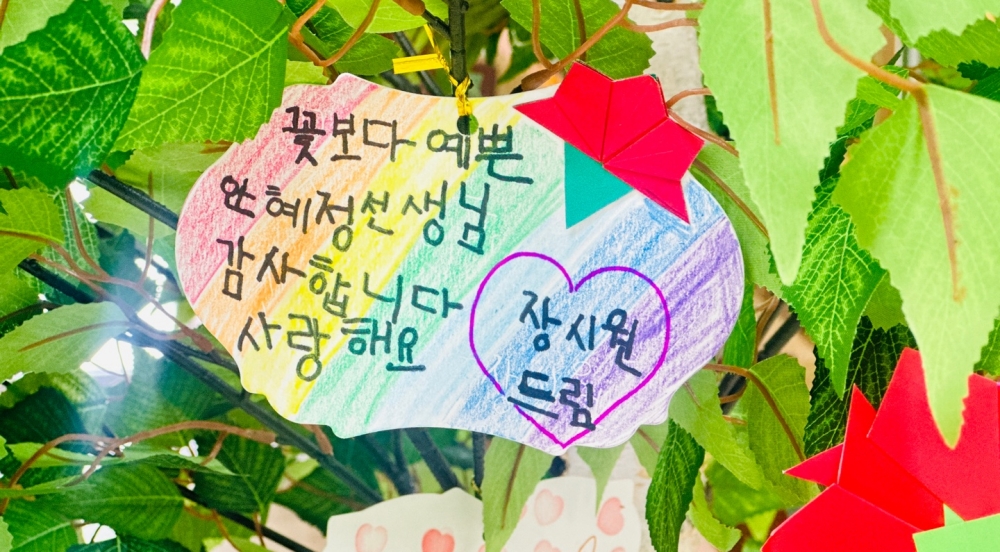 꽃보다 예쁜
안혜정선생님
감사합니다
사랑해요
장시원
드림